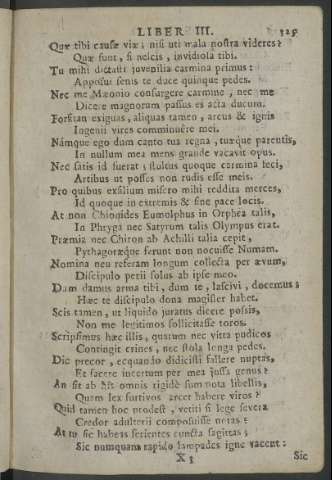 LIBER III. 325
Quæ tibi causæ viæ; nisi uti mala nostra videres?
Quæ sunt, si nescis, invidiosa tibi.
Tu mihi dictasti juvenilia carmina primus:
Apposui senis te duce quinque pedes.
Nec me Mæonio consurgere carmine, nec me
Dicere magnorum passus es acta ducum.
Forsitan exiguas, aliquas tamen, arcus & ignis
Ingenii vires comminuêre mei.
Námque ego dum canto tua regna, tuæque parentis,
In nullum mea mens grande vacavit opus.
Nec satis id fuerat; stultus quoque carmina feci,
Artibus ut posses non rudis esse meis.
Pro quibus exsilium misero mihi reddita merces,
Id quoque in extremis & sine pace locis.
At non Chionides Eumolphus in Orphea talis,
In Phryga nec Satyrum talis Olympus erat.
Præmia nec Chiron ab Achilli talia cepit,
Pythagoræque ferunt non nocuisse Numam.
Nomina neu referam longum collecta per ævum,
Discipulo perii solus ab ipse meo.
Dum damus arma tibi, dum te, lascivi, docemus;
Hæc te discipulo dona magister habet.
Scis tamen, ut liquido juratus dicere possis,
Non me legitimos sollicitasse toros.
Scripsimus hæc illis, quarum nec vitta pudicos
Contingit crines, nec stola longa pedes.
Dic precor, ecquando didicisti fallere nuptas,
Et facere incertum per mea jussa genus?
An sit ab his omnis rigidè summota libellis,
Quam lex furtivos arcet habere viros?
Quid tamen hoc prodest, vetiti si lege severa
Credor adulterii composuisse notas?
At tu sic habeas ferientes cuncta sagittas;
Sic numquam rapido lampades igne vacent:
X 3 Sic